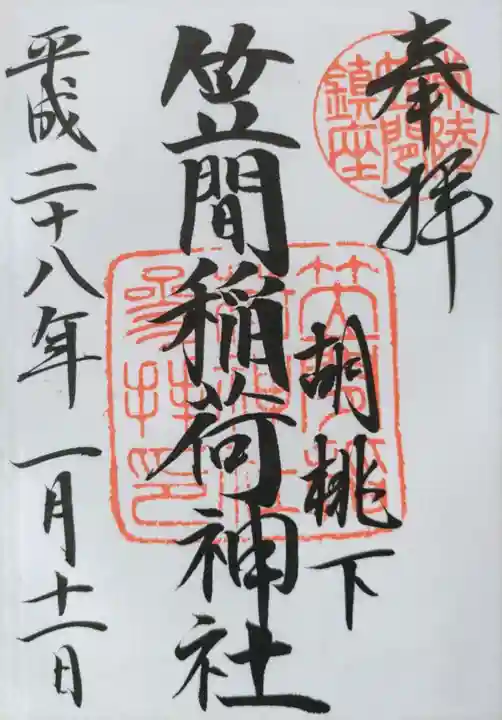 奉拝
常陸
笠間
鎮座
胡桃下
笠間稲荷神社
平成二十八年一月十一日